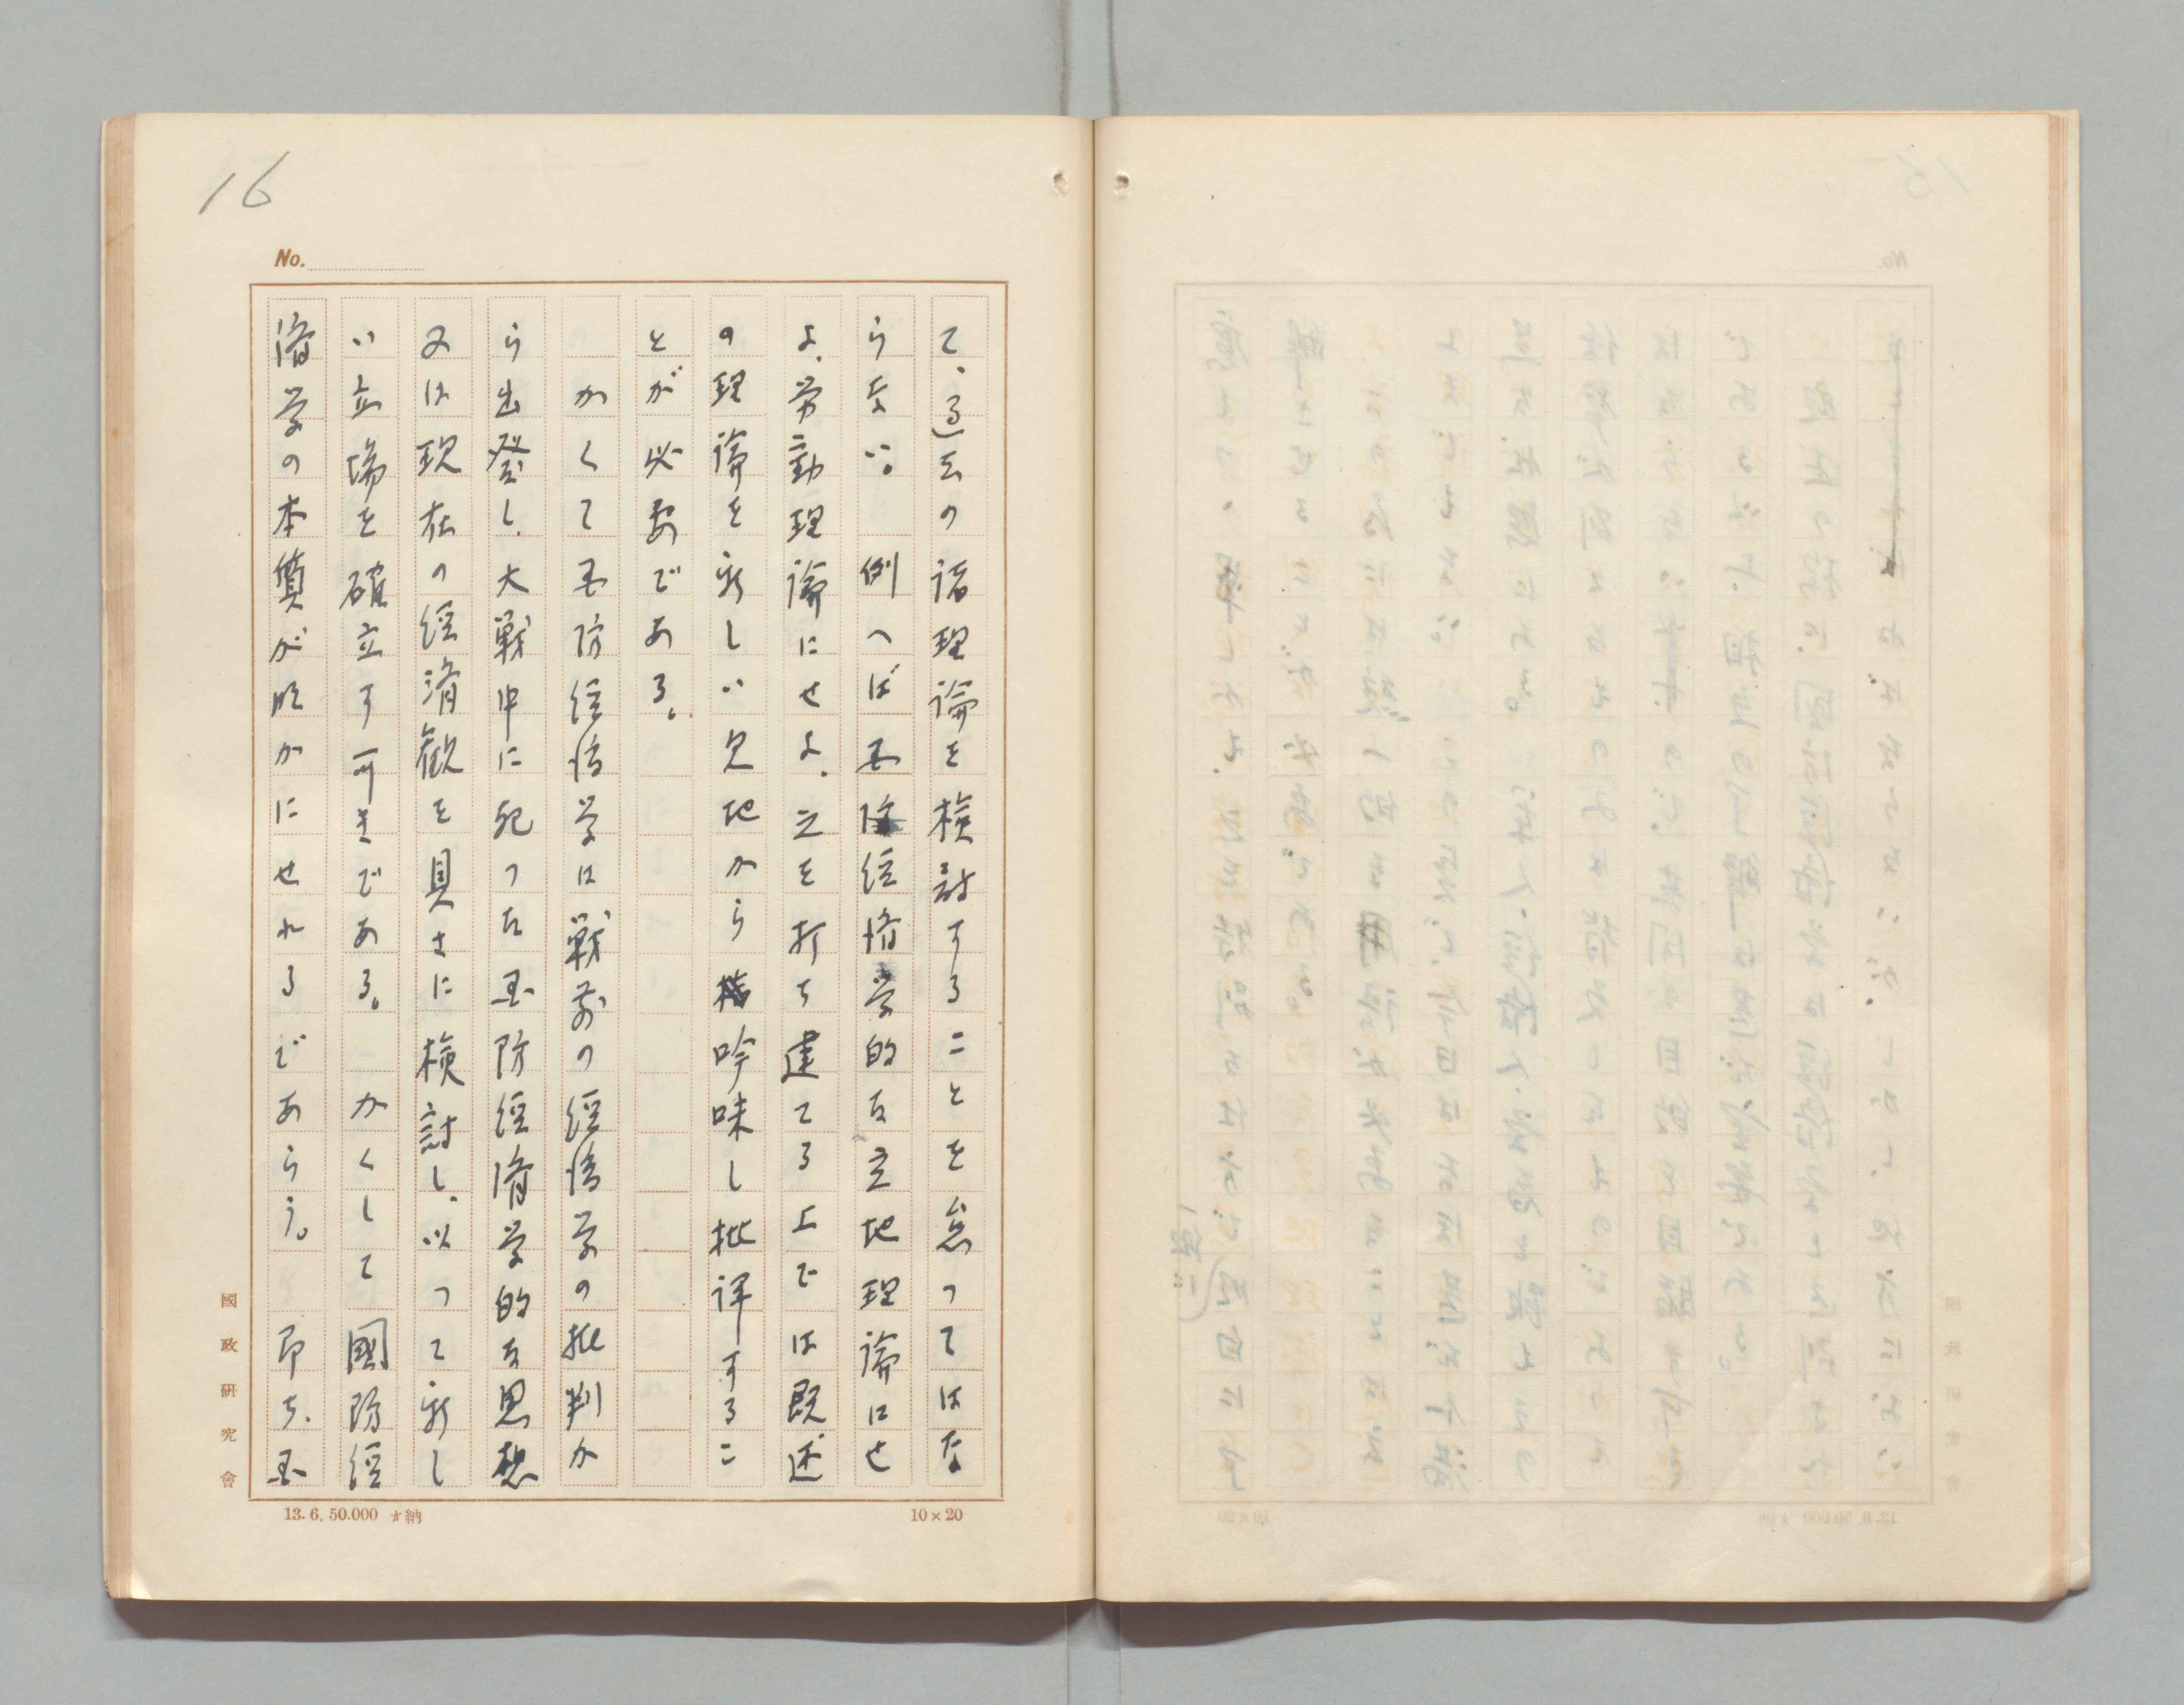 16
No.
て、過去の諸理論を検討することを怠つてはな
らない。例へば国防経済学的な立地理論にせ
よ、労働理論にせよ、之を打ち建てる上では既述
の理論を新しい見地から吟味し批評するこ
とが必要である。
かくて国防経済学は戦前の経済学の批判か
ら出発し、大戦中に現つた国防経済学的な思想
又は現在の経済観を具さに検討し、以つて新し
い立場を確立す可きである。かくして國防経
済学の本質が明かにせれるであらう。即ち、国
國政研究會
13.6.50.000 納
10×20